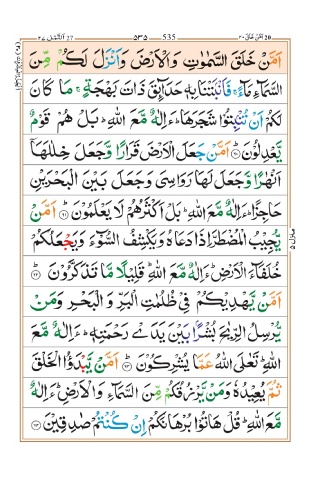 امن خلق ٢٠ ٥٣٥ 535 النمل ٢٧
اَمَّنْ خَلَقَ السَّمٰوٰتِ وَالْاَرْضَ وَاَنْزَلَ لَكُمْ مِّنَ
السَّمَآءِ مَآءً ۚ فَاَنْۢبَتْنَا بِهٖ حَدَآئِقَ ذَاتَ بَهْجَةٍ ۚ مَا كَانَ
لَكُمْ اَنْ تُنْۢبِتُوْا شَجَرَهَا ؕ ءَاِلٰهٌ مَّعَ اللّٰهِ ؕ بَلْ هُمْ قَوْمٌ
يَّعْدِلُوْنَ ؕ‏﴿۶۰﴾ اَمَّنْ جَعَلَ الْاَرْضَ قَرَارًا وَّجَعَلَ خِلٰلَهَاۤ
اَنْهٰرًا وَّجَعَلَ لَهَا رَوَاسِىَ وَجَعَلَ بَيْنَ الْبَحْرَيْنِ
حَاجِزًا ؕ ءَاِلٰهٌ مَّعَ اللّٰهِ ؕ بَلْ اَكْثَرُهُمْ لَا يَعْلَمُوْنَ ؕ‏﴿۶۱﴾ اَمَّنْ
يُّجِيْبُ الْمُضْطَرَّ اِذَا دَعَاهُ وَيَكْشِفُ السُّوْٓءَ وَيَجْعَلُكُمْ
خُلَفَآءَ الْاَرْضِ ؕ ءَاِلٰهٌ مَّعَ اللّٰهِ ؕ قَلِيْلًا مَّا تَذَكَّرُوْنَ ؕ‏﴿۶۲﴾
اَمَّنْ يَّهْدِيْكُمْ فِىْ ظُلُمٰتِ الْبَرِّ وَ الْبَحْرِ وَمَنْ
يُّرْسِلُ الرِّيٰحَ بُشْرًۢا بَيْنَ يَدَىْ رَحْمَتِهٖ ؕ ءَاِلٰهٌ مَّعَ
اللّٰهِ ؕ تَعٰلَى اللّٰهُ عَمَّا يُشْرِكُوْنَ ؕ‏﴿۶۳﴾ اَمَّنْ يَّبْدَؤُا الْخَلْقَ
ثُمَّ يُعِيْدُهٗ وَمَنْ يَّرْزُقُكُمْ مِّنَ السَّمَآءِ وَالْاَرْضِ ؕ ءَاِلٰهٌ
مَّعَ اللّٰهِ ؕ قُلْ هَاتُوْا بُرْهَانَكُمْ اِنْ كُنْتُمْ صٰدِقِيْنَ ‏﴿۶۴﴾